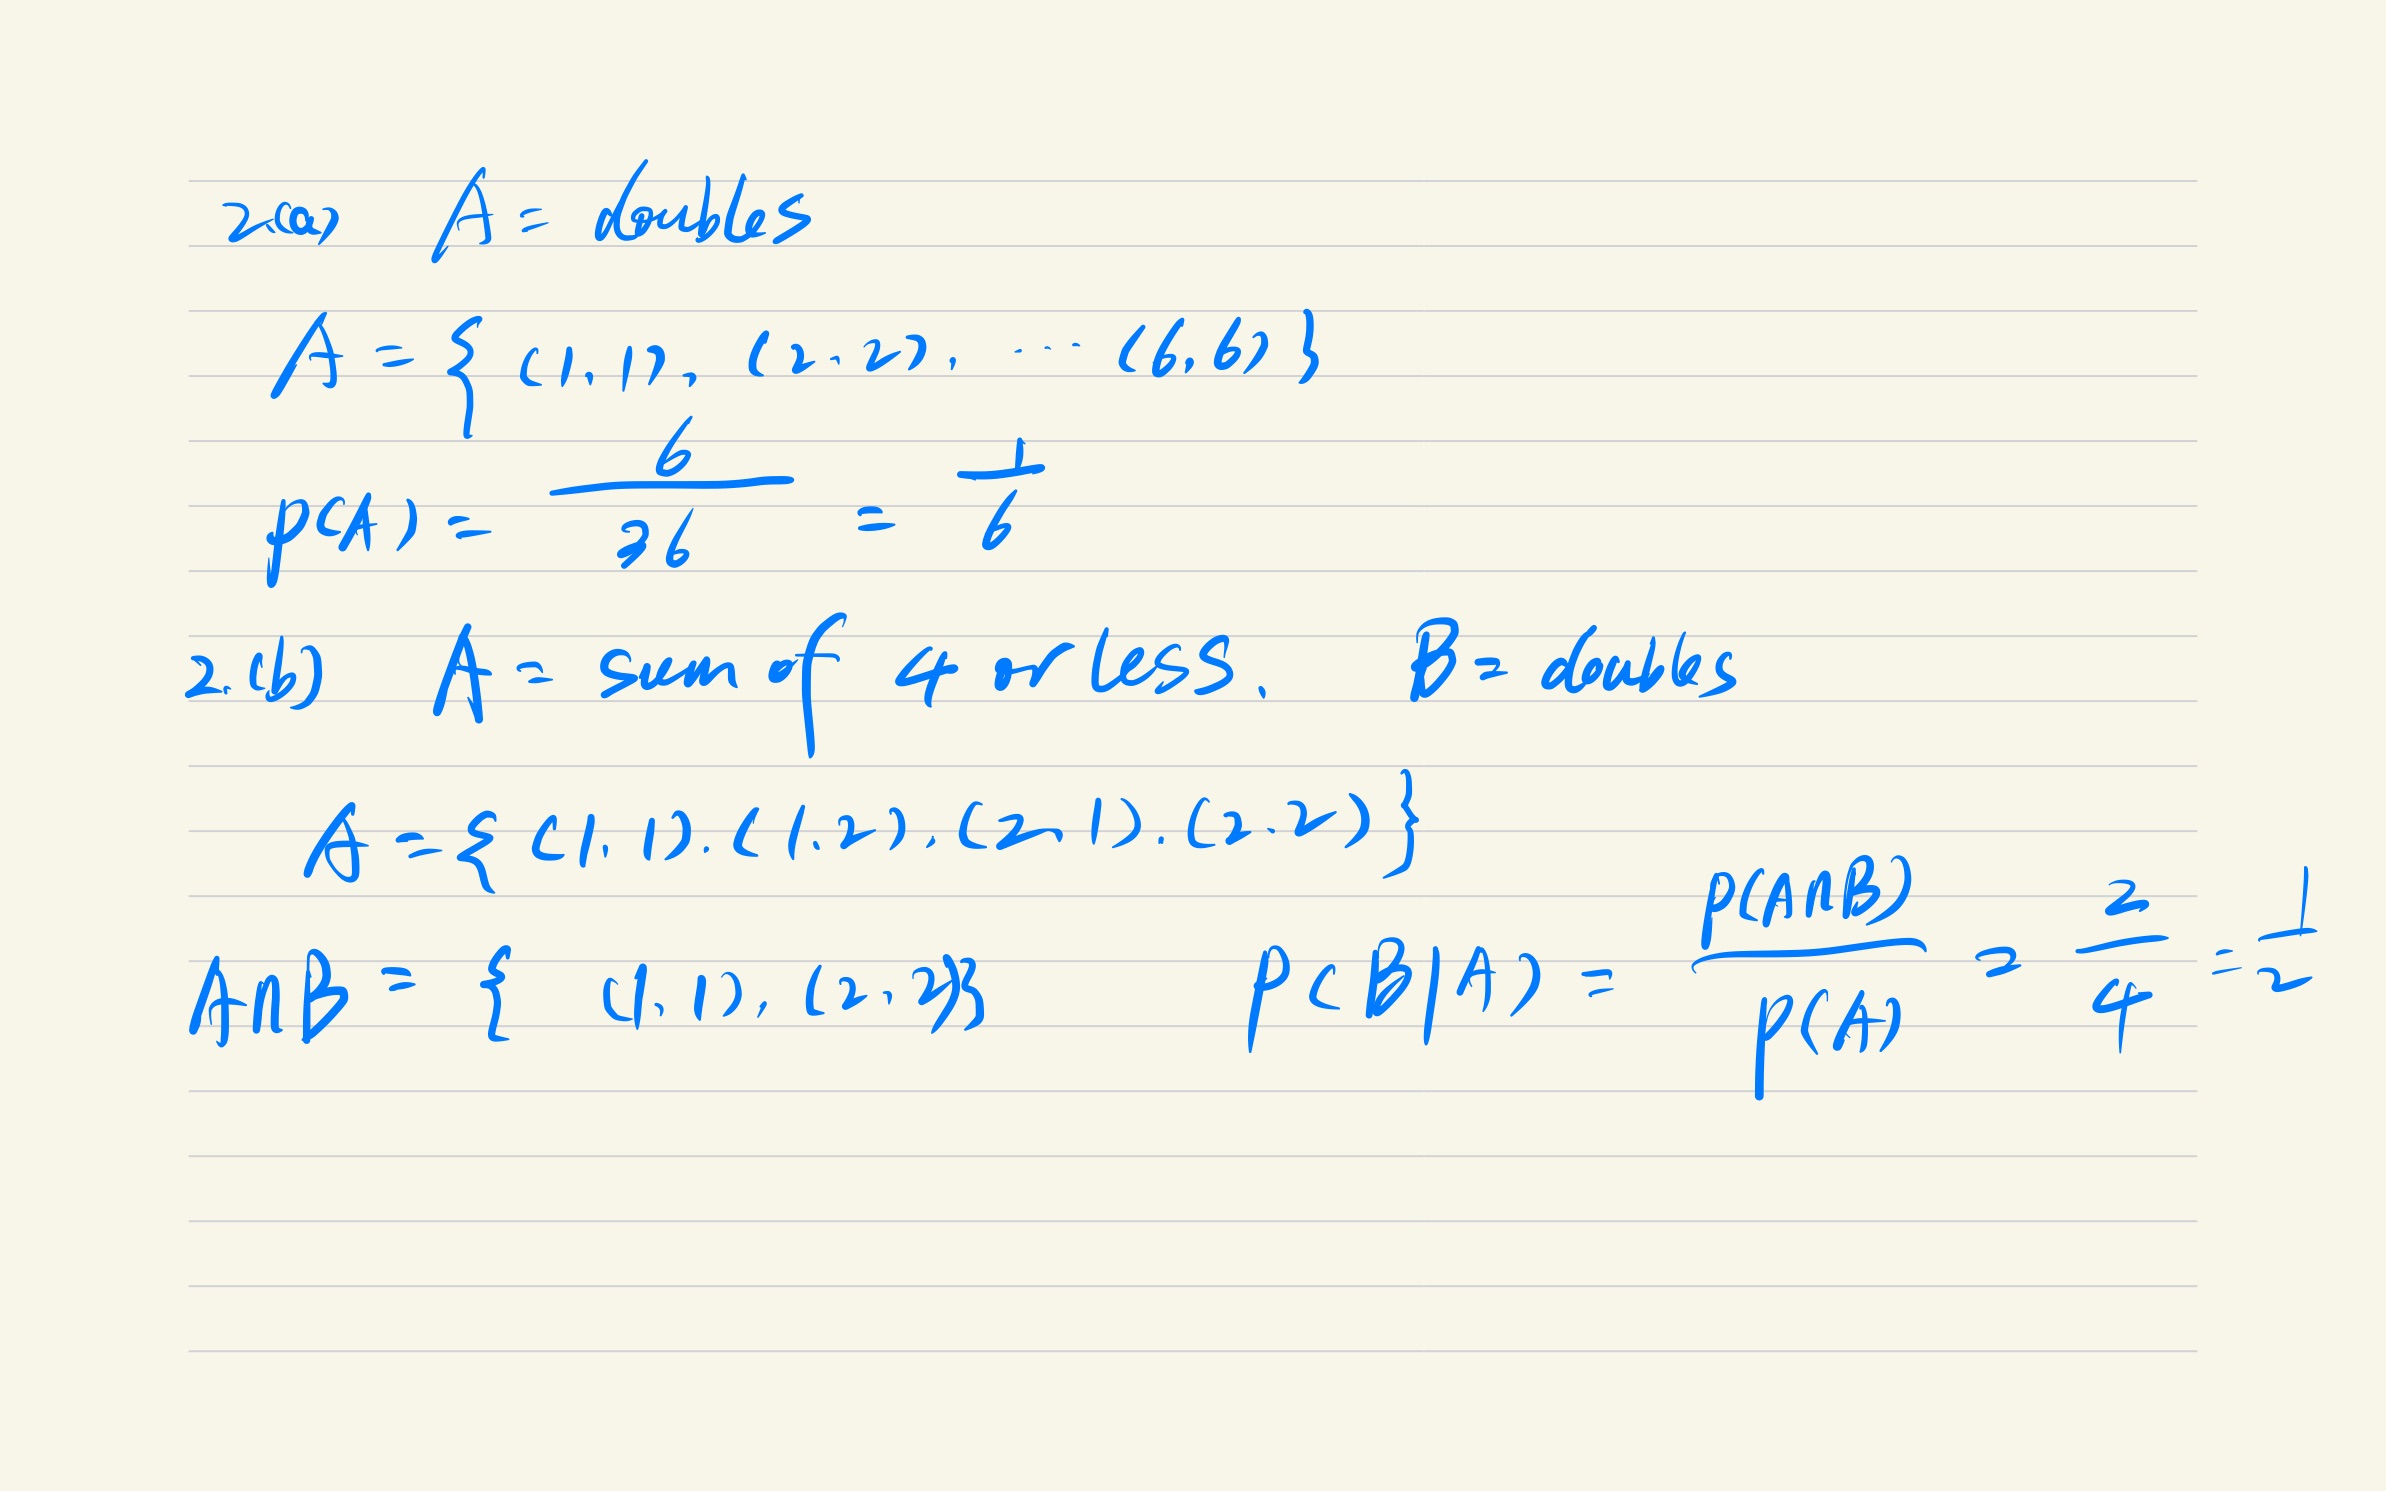 2(a) A = doubles
A = { (1,1), (2,2), ... (6,6) }
P(A) = 6/36 = 1/6
2.(b) A = sum of 4 or less. B = doubles
A = { (1,1). (1,2), (2,1). (2,2) }
A∩B = { (1,1), (2,2) } P(B|A) = P(A∩B)/P(A) = 2/4 = 1/2